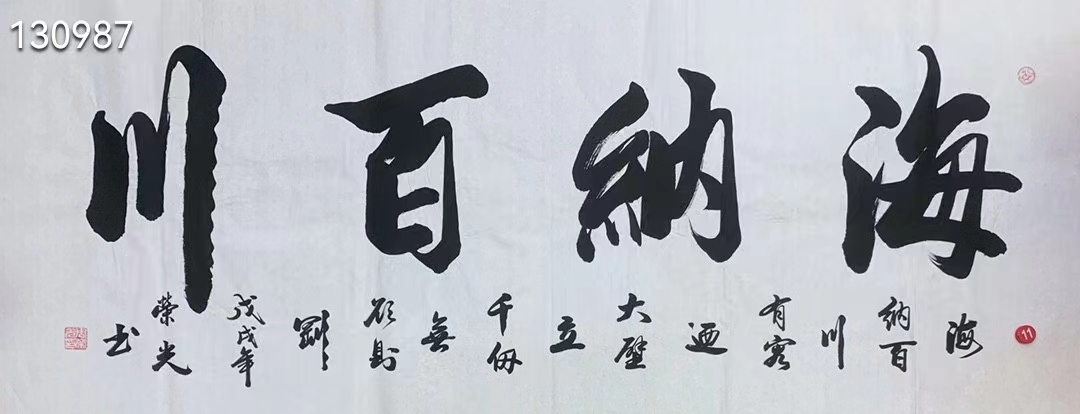 130987
海納百川
海納百川有容迺大壁立千仞無欲則剛
戊戌年榮光书
11